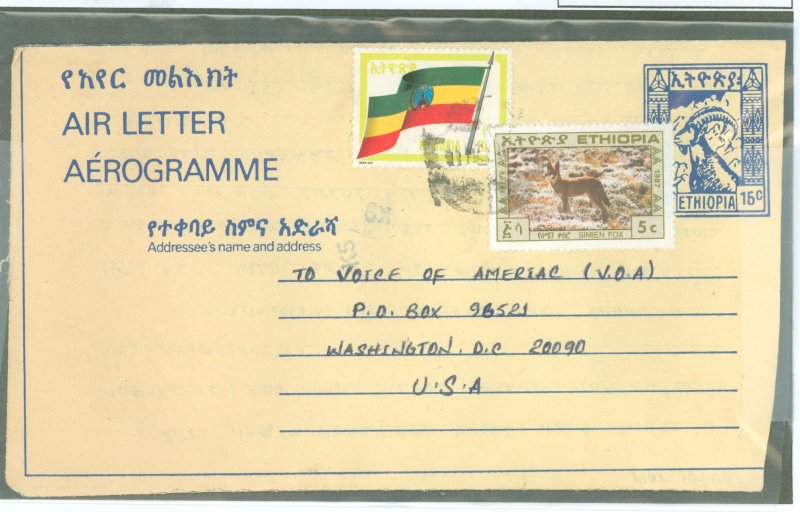 የአየር መልእክት
AIR LETTER
AÉROGRAMME
ኢትዮጵያ
ኢትዮጵያ
ETHIOPIA 15c
ኢትዮጵያ ETHIOPIA
1987
SIMIEN FOX 5c
የተቀባይ ስምና አድራሻ
Addressee's name and address
TO VOICE OF AMERIAC (V.O.A)
P.O. BOX 96521
WASHINGTON. D.C 20090
U.S.A